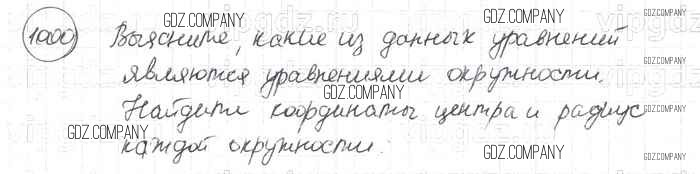 1000 Выясните, какие из данных уравнений
являются уравнениями окружности.
Найдите координаты центра и радиус
каждой окружности.
GDZ.COMPANY
GDZ.COMPANY
GDZ.COMPANY
GDZ.COMPANY
GDZ.COMPANY
GDZ.COMPANY
GDZ.COMPANY
GDZ.COMPANY
GDZ.COMPANY